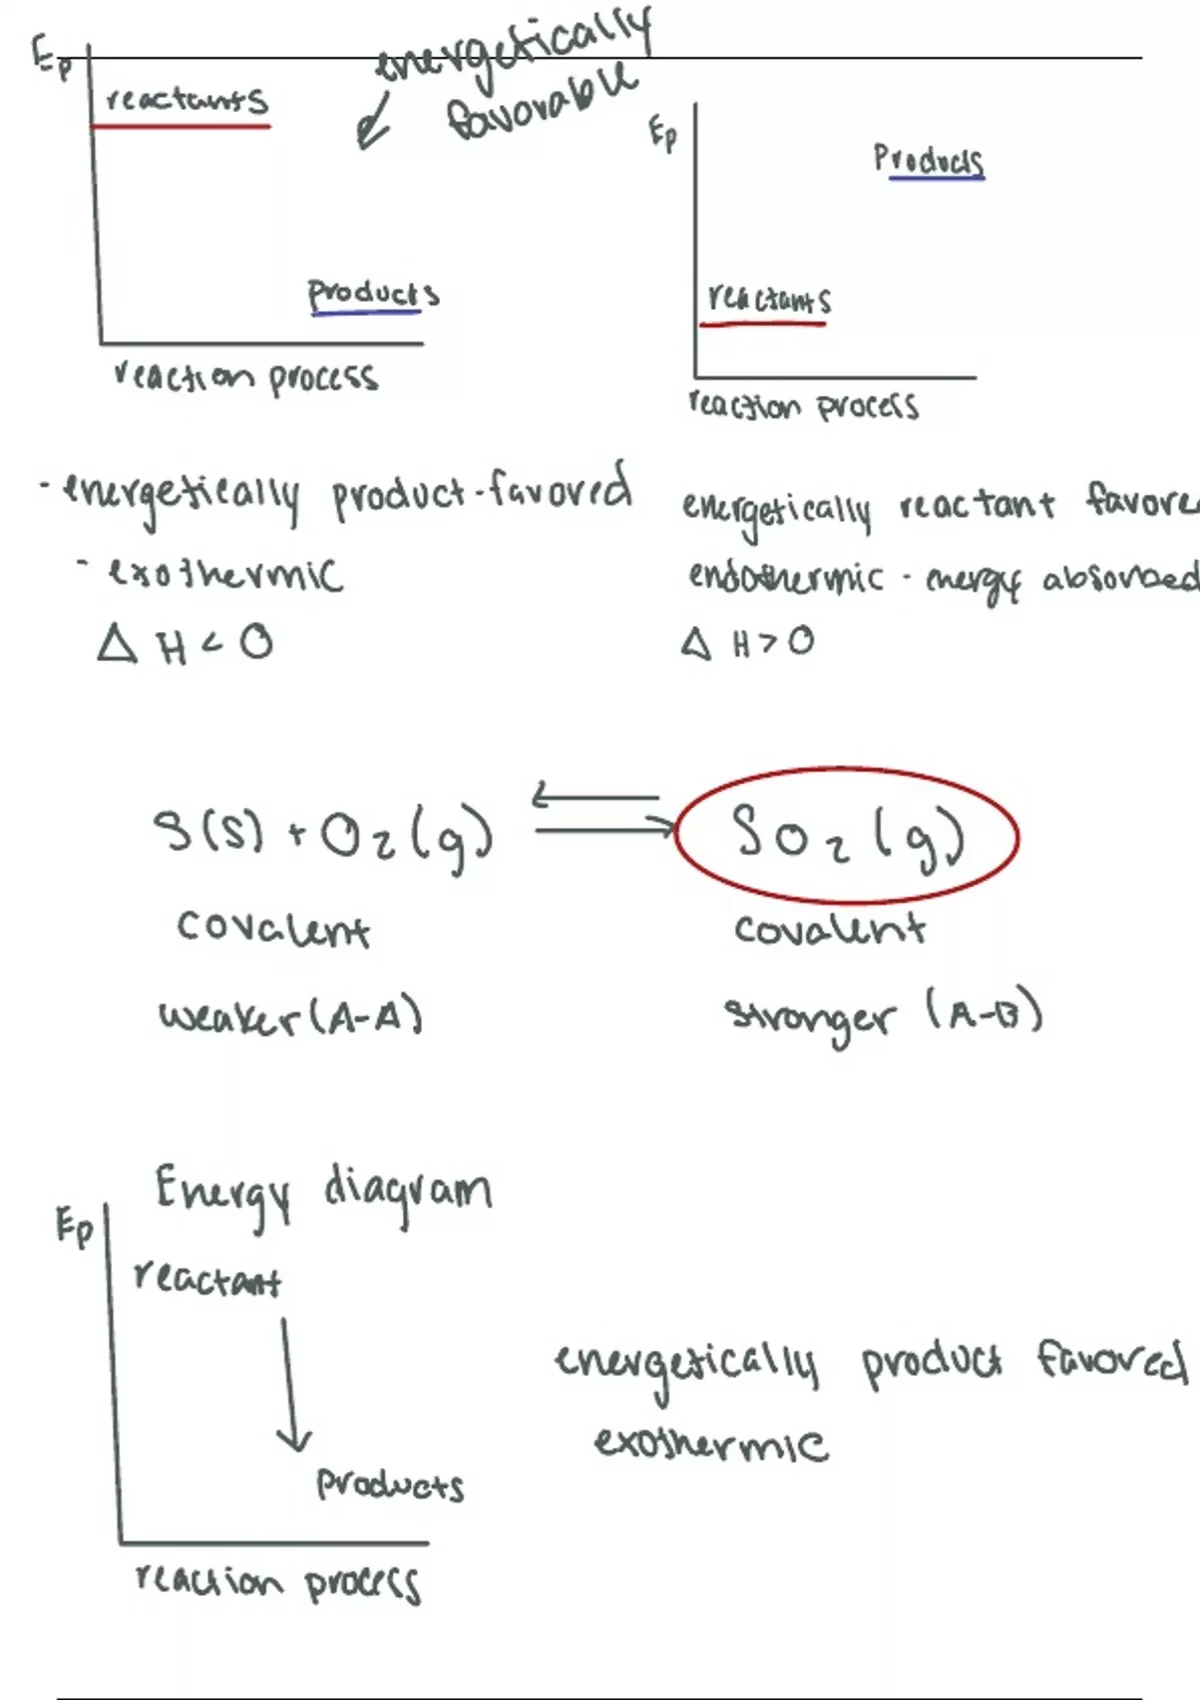 Ep
reactants
energetically
favorable
products
reaction process
Ep
Products
reactants
reaction process
- energetically product-favored
- exothermic
Δ H < 0
energetically reactant favore
endothermic - energy absorbed
Δ H > 0
S(s) + O2(g) ⇌ SO2(g)
covalent covalent
weaker (A-A) stronger (A-B)
Energy diagram
Ep
reactant
products
reaction process
energetically product favored
exothermic